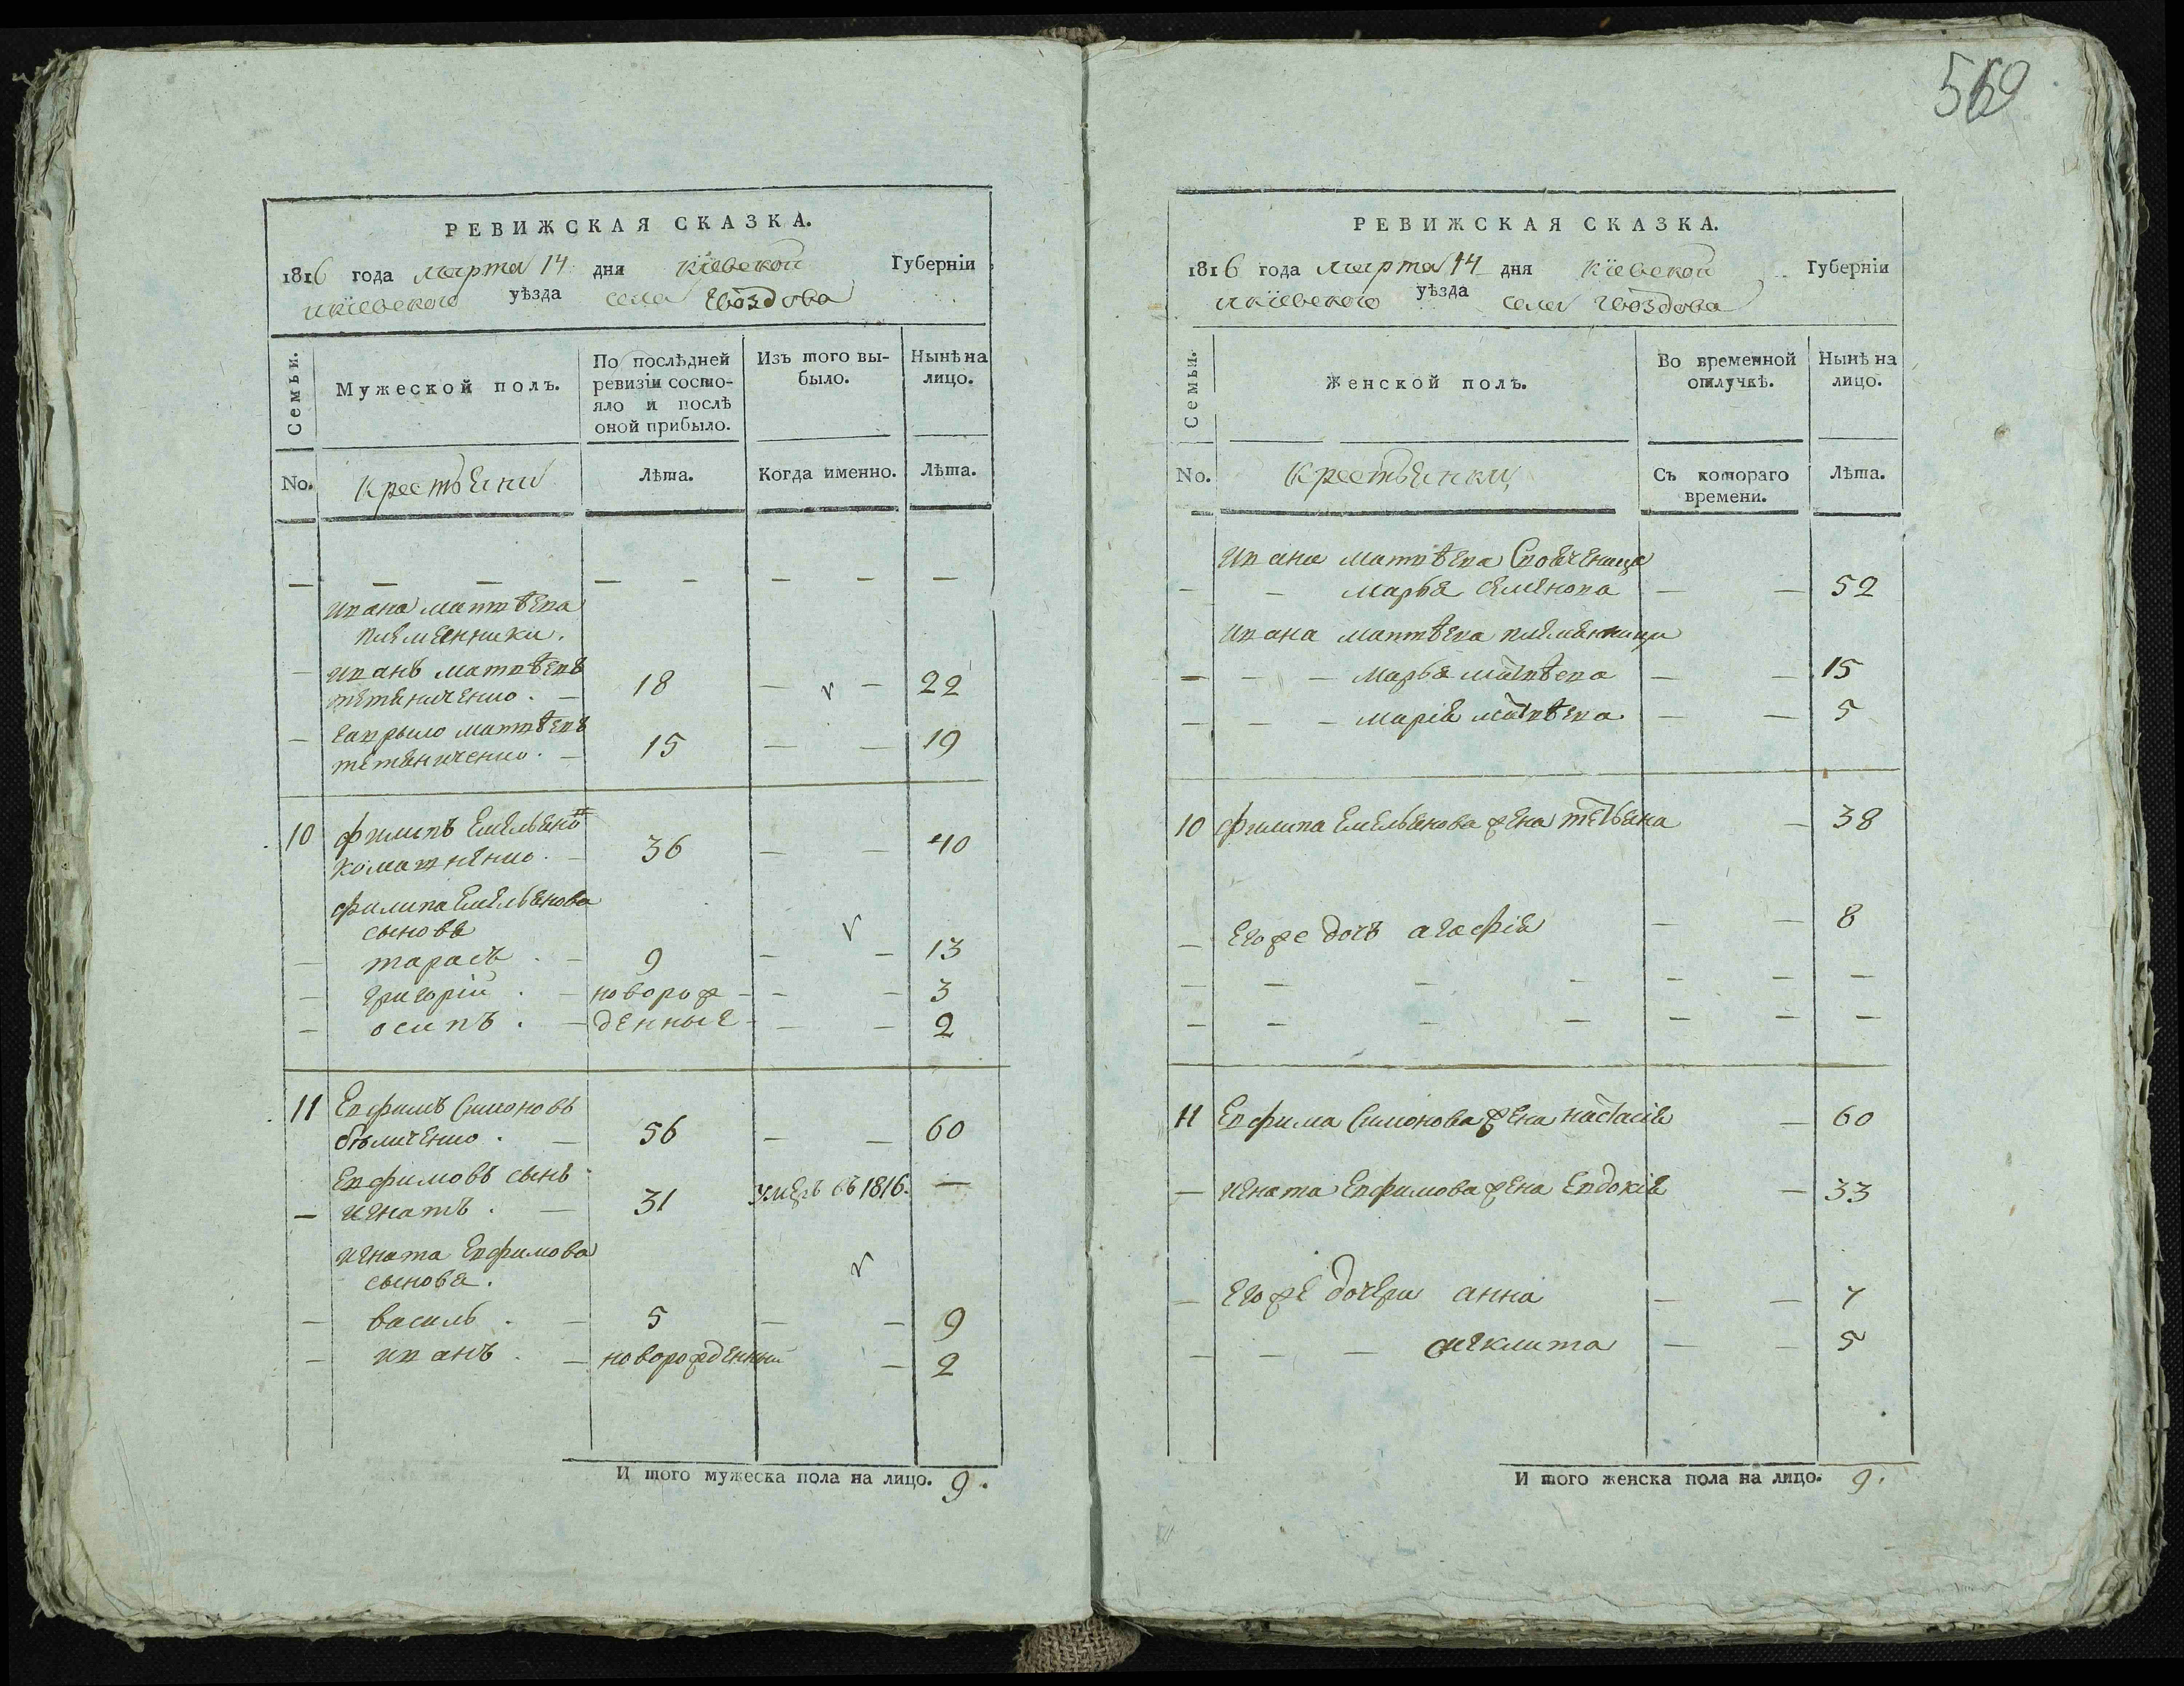 569
РЕВИЖСКАЯ СКАЗКА.
1816 года марта 14 дня Кіевской Губерніи
икіевского уѣзда села Гвоздова
Семьи.
Мужеской полъ.
По послѣдней ревизіи состояло и послѣ оной прибыло.
Изъ того выбыло.
Нынѣ на лицо.
No.
крестьяни
Лѣта.
Когда именно.
Лѣта.
— — — — — — — —
ивана матвѣева
племянники.
— иванъ матвѣевъ
18 — — 22
— гаврыло матвѣевъ
15 — — 19
10 филипъ Емельяно
36 — — 40
филипа Емельянова
сыновя
— тарасъ . — 9 — — 13
— григорій . — новорож — — — 3
— осипъ . — денные — — — 2
11 Евфимъ Симоновъ
бѣличенко . — 56 — — 60
Евфимовъ сынъ
— игнатъ . — 31 умеръ въ 1816. —
игната Евфимова
сыновя .
— василь . — 5 — — 9
— иванъ . — новорожденный — 2
И того мужеска пола на лицо. 9.
РЕВИЖСКАЯ СКАЗКА.
1816 года марта 14 дня Кіевской Губерніи
икіевского уѣзда села гвоздова
Семьи.
Женской полъ.
Во временной отлучкѣ.
Нынѣ на лицо.
No.
Крестьянки
Съ котораго времени.
Лѣта.
ивана матвѣева
— — марья семенова — — 52
ивана матвѣева племянници
— — — марья матвѣева — — 15
— — — марія матвѣева — — 5
10 филипа Емельянова жена татьяна — 38
— Его же дочъ агафія — — 8
— — — — — — —
— — — — — — —
11 Евфима Симонова жена настасія — 60
— игната Евфимова жена Евдокія — 33
— Его же дочери анна — — 7
— — — — — 5
И того женска пола на лицо. 9.